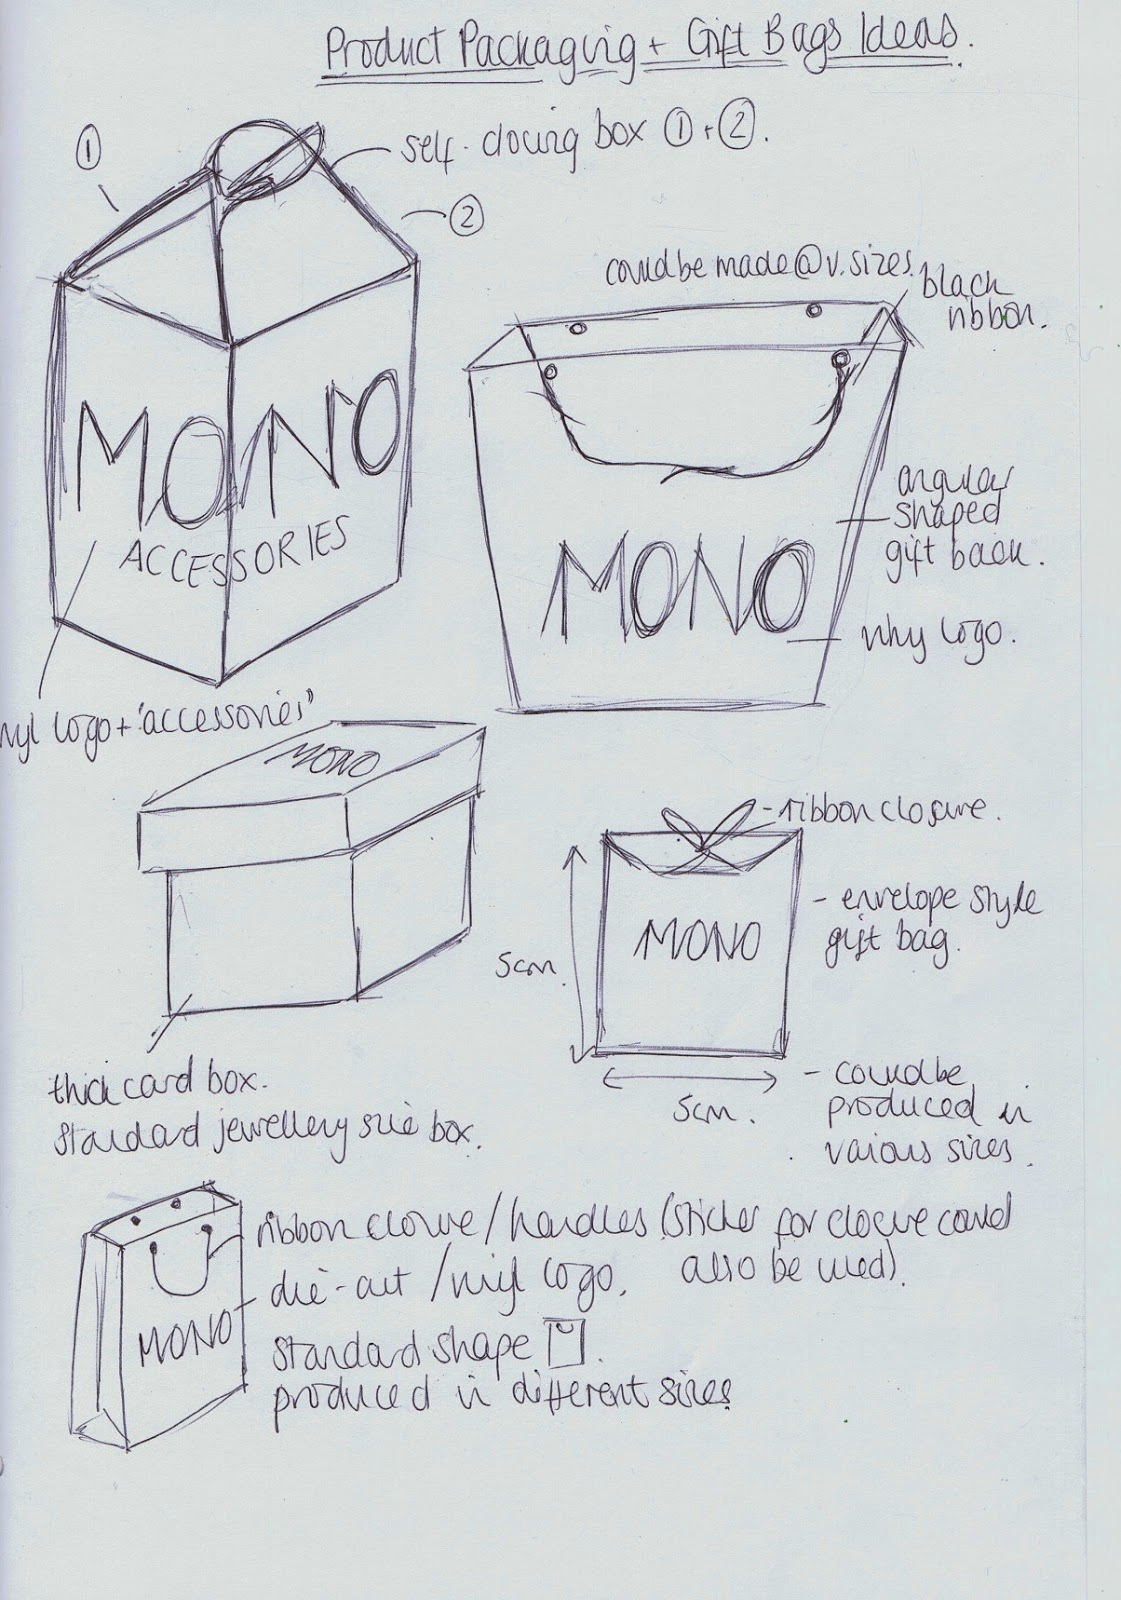 Product Packaging + Gift Bags Ideas.
①
self-closing box ① + ②.
②
MONO
ACCESSORIES
vinyl logo + 'accessories'
could be made @ v. sizes.
black
ribbon.
angular
shaped
gift back.
MONO
vinyl logo.
MONO
thick card box.
standard jewellery size box.
- ribbon closure.
MONO
- envelope style
gift bag.
5cm.
5cm.
- could be
produced in
various sizes.
MONO
ribbon closure / handles (sticker for closure could
also be used).
die-cut / vinyl logo.
standard shape
produced in different sizes